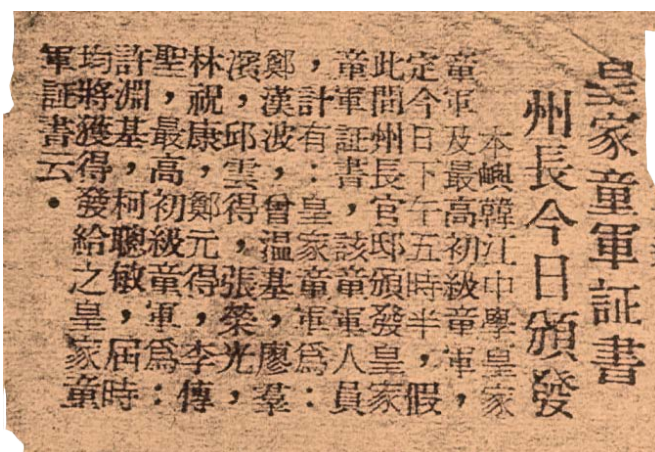 皇家童軍証書
州長今日頒發
本嶼韓江中學皇家
童軍及最高初級童軍，
定今日下午五時半，假
此間州長官邸頒發皇家
童軍証書，該童軍人員
，計有：皇家童軍為：
鄭漢波，曾温基，廖羣
濱，邱雲得，張榮光，
林祝康，鄭元得，李傳
聖，最高初級童軍為：
許淵基，柯聰敏，屆時
均將獲得發給之皇家童
軍証書云。